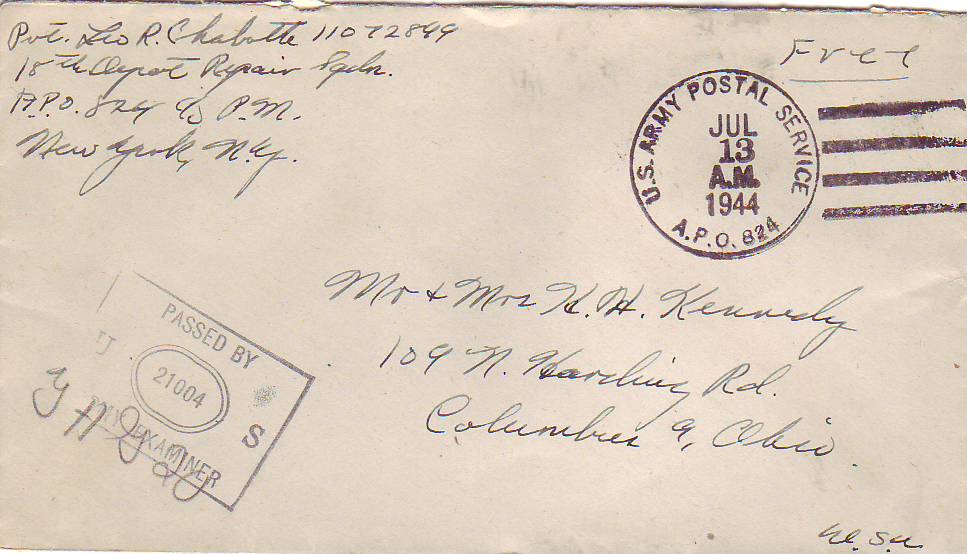 Pvt. Leo R. Chabotte 11072899
18th Depot Repair Sqdn.
A.P.O. 824 c/o P.M.
New York, N.Y.
Free
U.S. ARMY POSTAL SERVICE
JUL
13
A.M.
1944
A.P.O. 824
Mr & Mrs H. H. Kennedy
109 N. Harding Rd.
Columbus 9, Ohio.
PASSED BY
21004
S
EXAMINER
U.S.A.